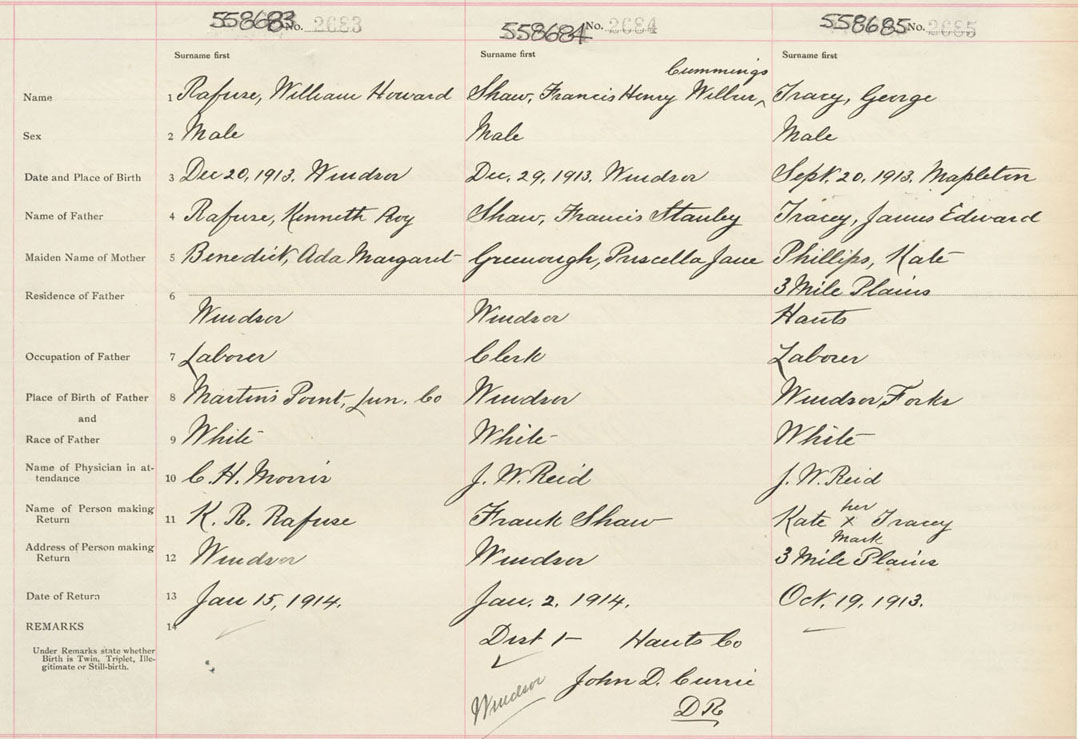 558683 No. 2683 558684 No. 2684 558685 No. 2685
Surname first Surname first Surname first
Cummings
Name 1 Rafuse, William Howard Shaw, Francis Henry Wilbur, ‸ Tracy, George
Sex 2 Male Male Male
Date and Place of Birth 3 Dec 20, 1913. Windsor Dec. 29, 1913. Windsor Sept. 20, 1913. Mapleton
Name of Father 4 Rafuse, Kenneth Roy Shaw, Francis Stanley Tracey, James Edward
Maiden Name of Mother 5 Benedict, Ada Margaret Greenough, Priscella Jane Phillips, Kate
3 Mile Plains
Residence of Father 6 Windsor Windsor Hants
Occupation of Father 7 Laborer Clerk Laborer
Place of Birth of Father 8 Martin's Point, Lun. Co Windsor Windsor Forks
and
Race of Father 9 White White White
Name of Physician in at-
tendance 10 C. H. Morris J. W. Reid J. W. Reid
her
Name of Person making
Return 11 K. R. Rafuse Frank Shaw Kate x Tracey
Mark
Address of Person making
Return 12 Windsor Windsor 3 Mile Plains
Date of Return 13 Jan 15, 1914. Jan. 2, 1914. Oct. 19, 1913.
REMARKS 14
Dist 1 Hants Co
Under Remarks state whether
Birth is Twin, Triplet, Ille-
gitimate or Still-birth.
Windsor John D. Currie
D R